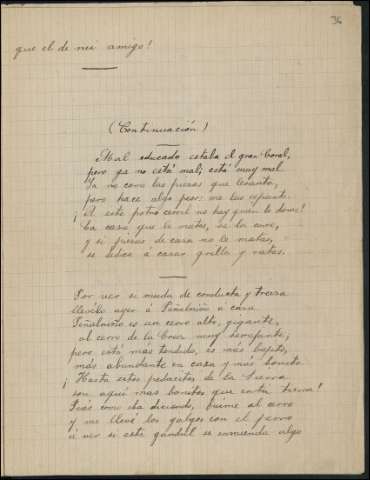 36
que el de mi amigo!
(Continuación)
Mal educado estaba el gran Coral,
pero ya no está mal; está muy mal.
Ya no come las piezas que levanto,
pero hace algo peor: me las espanta.
¡A este potro cerril no hay quien le dome!
La caza que le matas, se la come,
y si piezas de caza no le matas,
se dedica a cazar grillos y ratas.
Por ver si muda de conducta y traza
llevéle ayer a Peñalniño á caza
Peñalniño es un cerro alto, gigante,
al cerro de la Cruz muy semejante;
pero está más tendido, es más bajito,
más abundante en caza y más bonito.
¡Hasta estos pedacitos de la tierra
son aquí más bonitos que en tu tierra!
Pues como iba diciendo, fuime al cerro
y me llevé los galgos con el perro
á ver si este gandul se enmienda algo